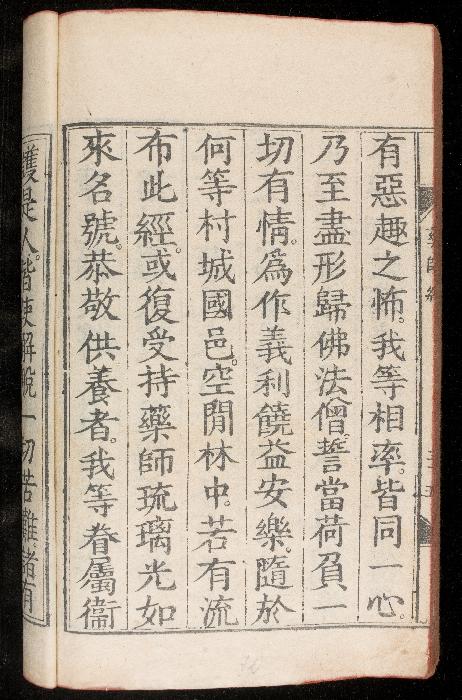 有惡趣之怖。我等相率。皆同一心。
乃至盡形歸佛法僧。誓當荷負一
切有情。爲作義利饒益安樂。隨於
何等村城國邑。空閒林中。若有流
布此經。或復受持藥師琉璃光如
來名號。恭敬供養者。我等眷屬衞
護是人。皆使解脫一切苦難諸有